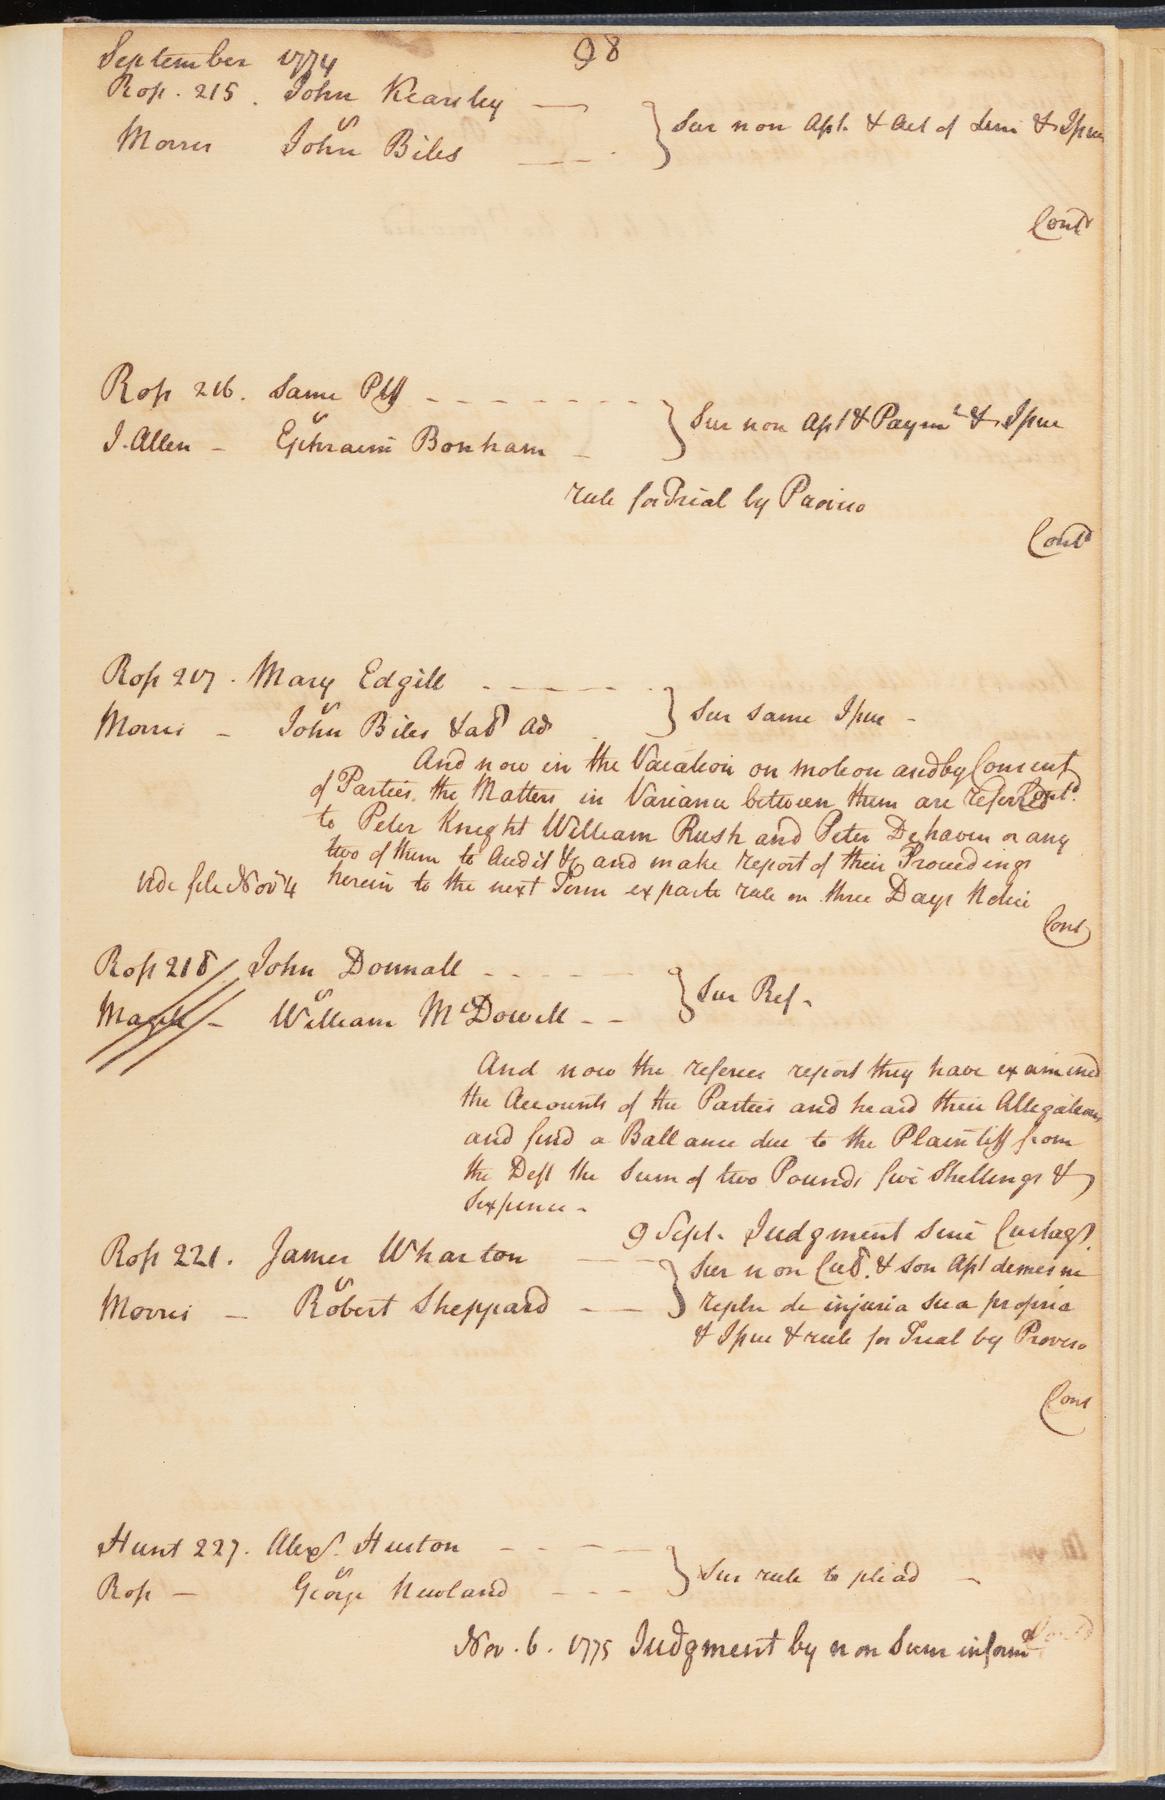 September 1774
98
Ross. 215. John Kearsley
vs
Morris John Biles
Sur non Aſst. & Act of Limi & Iſsue
Contd
Ross 216. Same Plff
vs
J. Allen - Ephraim Bonham -
Sur non Aſst & Paymt & Iſsue
rule for Trial by Proviso
Contd
Ross 217. Mary Edgill
vs
Morris - John Biles & ad
Sur same Iſsue -
And now in the Vacation on motion and by Consent
of Parties, the Matters in Variance between them are referred Contd.
to Peter Knight William Rush and Peter Dehaven or any
two of them to Audit &c and make report of their Proceedings
vide file Nov 4 herein to the next Term exparte rule on three Days Notice
Cont
Ross 218 John Donnall
vs
- William McDowell - -
Sur Ref -
And now the referees report they have examined
the Accounts of the Parties and heard their Allegations
and find a Ballance due to the Plaintiff from
the Deft the Sum of two Pounds five Shillings &
Sixpence -
9 Sept. Judgment
Ross 221. James Wharton
vs
Morris - Robert Sheppard - -
Sur non Cul. & son Aſst demesne
repln de injuria sua propria
& Iſsue & rule for Trial by Proviso
Cont
Hunt 227. Alexr. Huston
vs
Ross - George Newland
Sur rule to plead -
Contd
Nov. 6. 1775 Judgment by non Sum informs